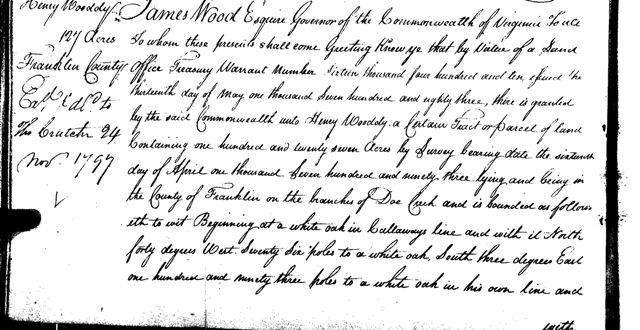 Henry Wooddy
127 Acres
Franklin County
Exd. & dld. to
Tho Crutcher 24
Nov. 1797
James Wood Esquire Governor of the Commonwealth of Virginia To all
to whom these presents shall come Greeting Know ye that by Virtue of a Land
Office Treasury Warrant Number Sixteen thousand four hundred and ten, issued the
thirteenth day of may one thousand Seven hundred and eighty three, there is granted
by the said Commonwealth unto Henry Wooddy. a Certain Tract or parcel of land
Containing one hundred and twenty seven Acres by Survey bearing date the sixteenth
day of April one thousand Seven hundred and ninety three lying and being in
the County of Franklin on the branches of Doe Creek and is bounded as follow
eth to wit Beginning at a white oak in Callaways line and with it North
forty degrees West Seventy Six poles to a white oak, South three degrees East
one hundred and ninety three poles to a white oak in his own line and
with